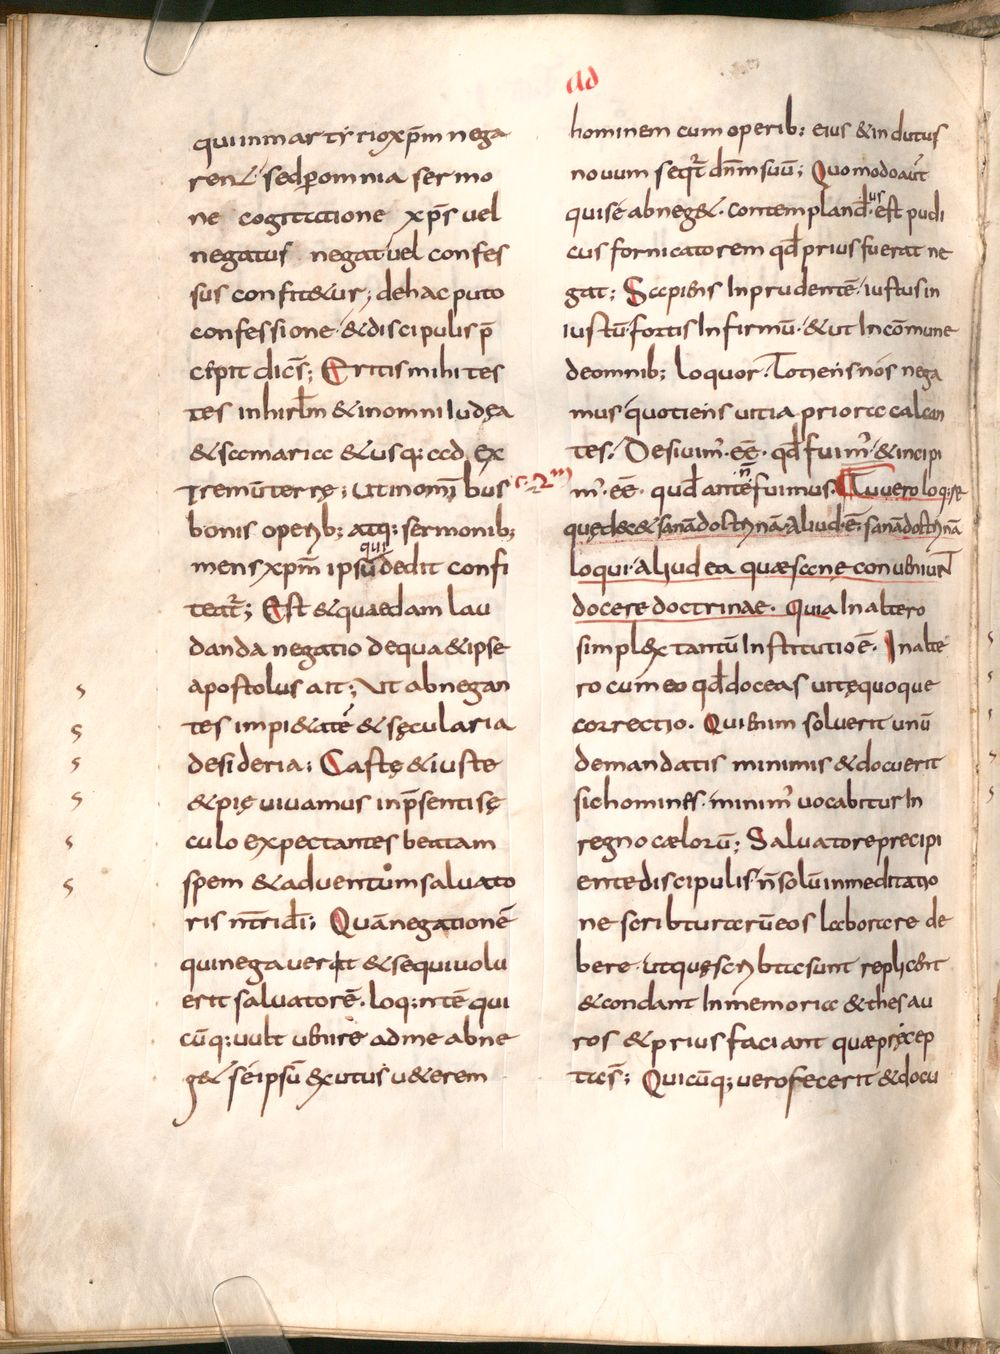 ad
qui inmartyrio xp̄m nega
ren&́ sed ꝑomnia sermo
ne cogitatione xp̄s uel
negatus negat uel confes
sus confit&ur; dehac puto
confessione &discipulis p̄
cępit dicēs; Eritis mihi tes
tes inhirlm̄ &inomni Iudęa
&samaria &usq; ad ex
tremū terrę; Ut inomībus
bonis operib; atq; sermonib;
mens xpm̄ ipsū qui dedit confi
teat̄; Est &quaedam lau
danda negatio dequa &ipse
apostolus ait; Ut abnegan
tes impi&atē &sęcularia
desideria; Castę &iuste
&pię uiuamus inp̄senti sę
culo expectantes beatam
spem &aduentum saluato
ris nr̄i dī; Quā negationē
qui negauerit &sequi uolu
erit saluatorē. loq;ntē qui
cūq; uult uenire ad me abne
g&́ séipsū &xutus u&erem
hominem cum operib; eius &indutus
nouum seqt̄ dn̄m suū; Quomodo aūt
quisé abneg&. contempland' ur est pudi
cus fornicatorem qd̄ prius fuerat ne
gat; Sapiens Inprudentē. iustus in
iustū. fortis Infirmū. &ut Incōmune
deomnib; loquor. Totiens nós nega
mus quotiens uitia priora calcan
tes. Desiuim'. eē. qd̄ fuim'. &incipi
m'. eē. quod ante n̄ fuimus. Tu uero loq;re
quędec& sanā doctrinā. Aliud. ē. sanā doctrinā
loqui. aliud ea quae sane conueniunt
docere doctrinae. Quia In altero
simplex tantū Institutio ē. In alte
ro cum eo qd̄ doceas uitę quoque
correctio. Qui enim soluerit unū
demandatis minimis &docuerit
sic homines. minim' uocabitur In
regno cælorū; Saluatore precipi
ente discipulis. n̄ solū inmeditatio
ne scribturarū eos laborare de
bere. ut quę scribta sunt replicent
&condant Inmemoria &thesau
ros &prius faciant quae pręcep
ta s̄; Quicūq; uero fecerit &docu